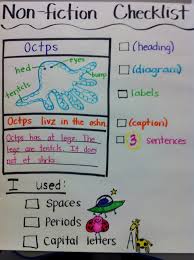 Non-fiction Checklist
Octps
(heading)
eyes
hed
bump
(diagram)
tentcls
labels
Octps livz in the oshn.
(caption)
Octps has at lege. The
lege are tentcls. It does
not et shrks
3 sentences
I used:
Spaces
Periods
Capital letters